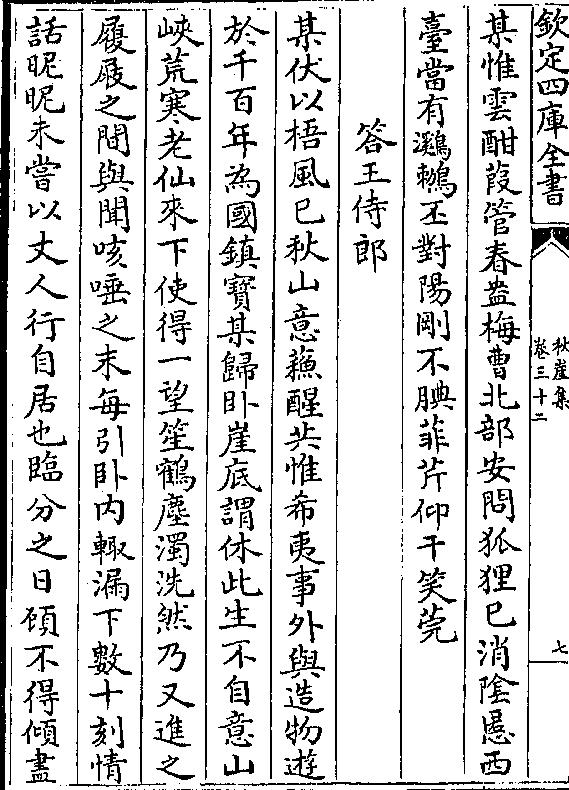 欽定四庫全書
秋崖集
卷三十二
七
某惟雲酣葭管春盎梅曹北部安問狐狸已消陰慝西
臺當有鸂鶒丕對陽剛不腆菲芹仰干笑莞
答王侍郎
某伏以梧風已秋山意蘓醒共惟希夷事外與造物遊
於千百年為國鎮寶某歸卧崖底謂休此生不自意山
峽荒寒老仙來下使得一望笙鶴塵濁洗然乃又進之
履屐之間與聞咳唾之末每引卧内輙漏下數十刻情
話昵昵未嘗以丈人行自居也臨分之日頋不得傾盡